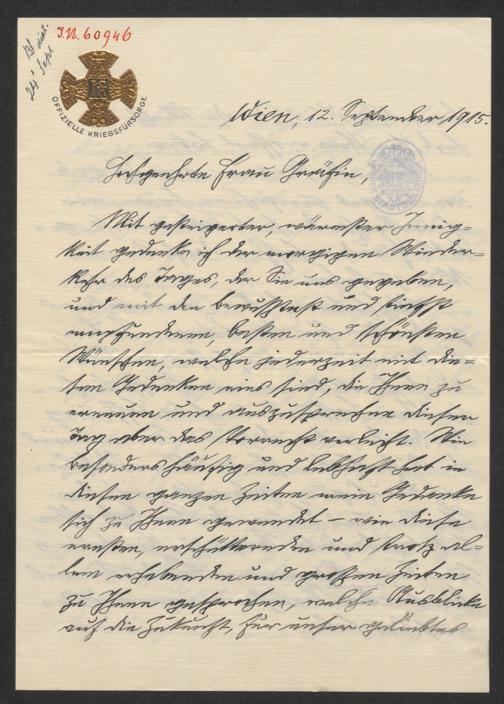 J.N. 60946
OFFIZIELLE KRIEGSFÜRSORGE
Wien, 12. September 1915.
Hochgeehrte Frau Gräfin,
Mit gesteigerter, wärmster Innig-
keit gedenke ich der morgigen Wieder-
kehr des Tages, der Sie uns gegeben,
und mit den bewußtest und tiefst
empfundenen, besten und schönsten
Wünschen, welche jederzeit mit die-
sem Gedenken eins sind, die Ihnen zu
erneuern und auszusprechen dieser
Tag aber das Vorrecht verleiht. Wie
besonders häufig und lebhaft hat in
diesen ganzen Zeiten mein Gedenken
sich zu Ihnen gewendet – wie diese
ernsten, erschütternden und trotz al-
lem erhebenden und großen Zeiten
zu Ihnen gesprochen, welche Ausblicke
auf die Zukunft, für unser geliebtes